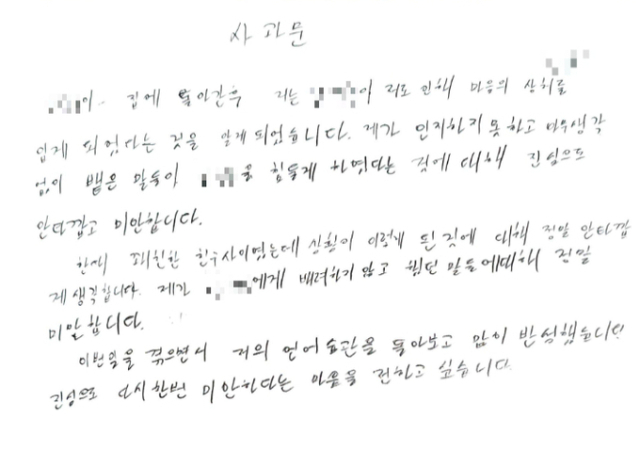 사과문
이 집에 돌아간후 저는 이 저로 인해 마음의 상처를
입게 되었다는 것을 알게 되었습니다. 제가 인지하지 못하고 아무생각
없이 뱉은 말들이 을 힘들게 하였다는 것에 대해 진심으로
안타깝고 미안합니다.
한때 친한 친구사이였는데 상황이 이렇게 된 것에 대해 정말 안타깝
게 생각합니다. 제가 에게 배려하지 않고 했던 말들에대해 정말
미안합니다.
이번일을 겪으면서 저의 언어습관을 돌아보고 많이 반성했습니다
진심으로 다시한번 미안하다는 마음을 전하고 싶습니다.